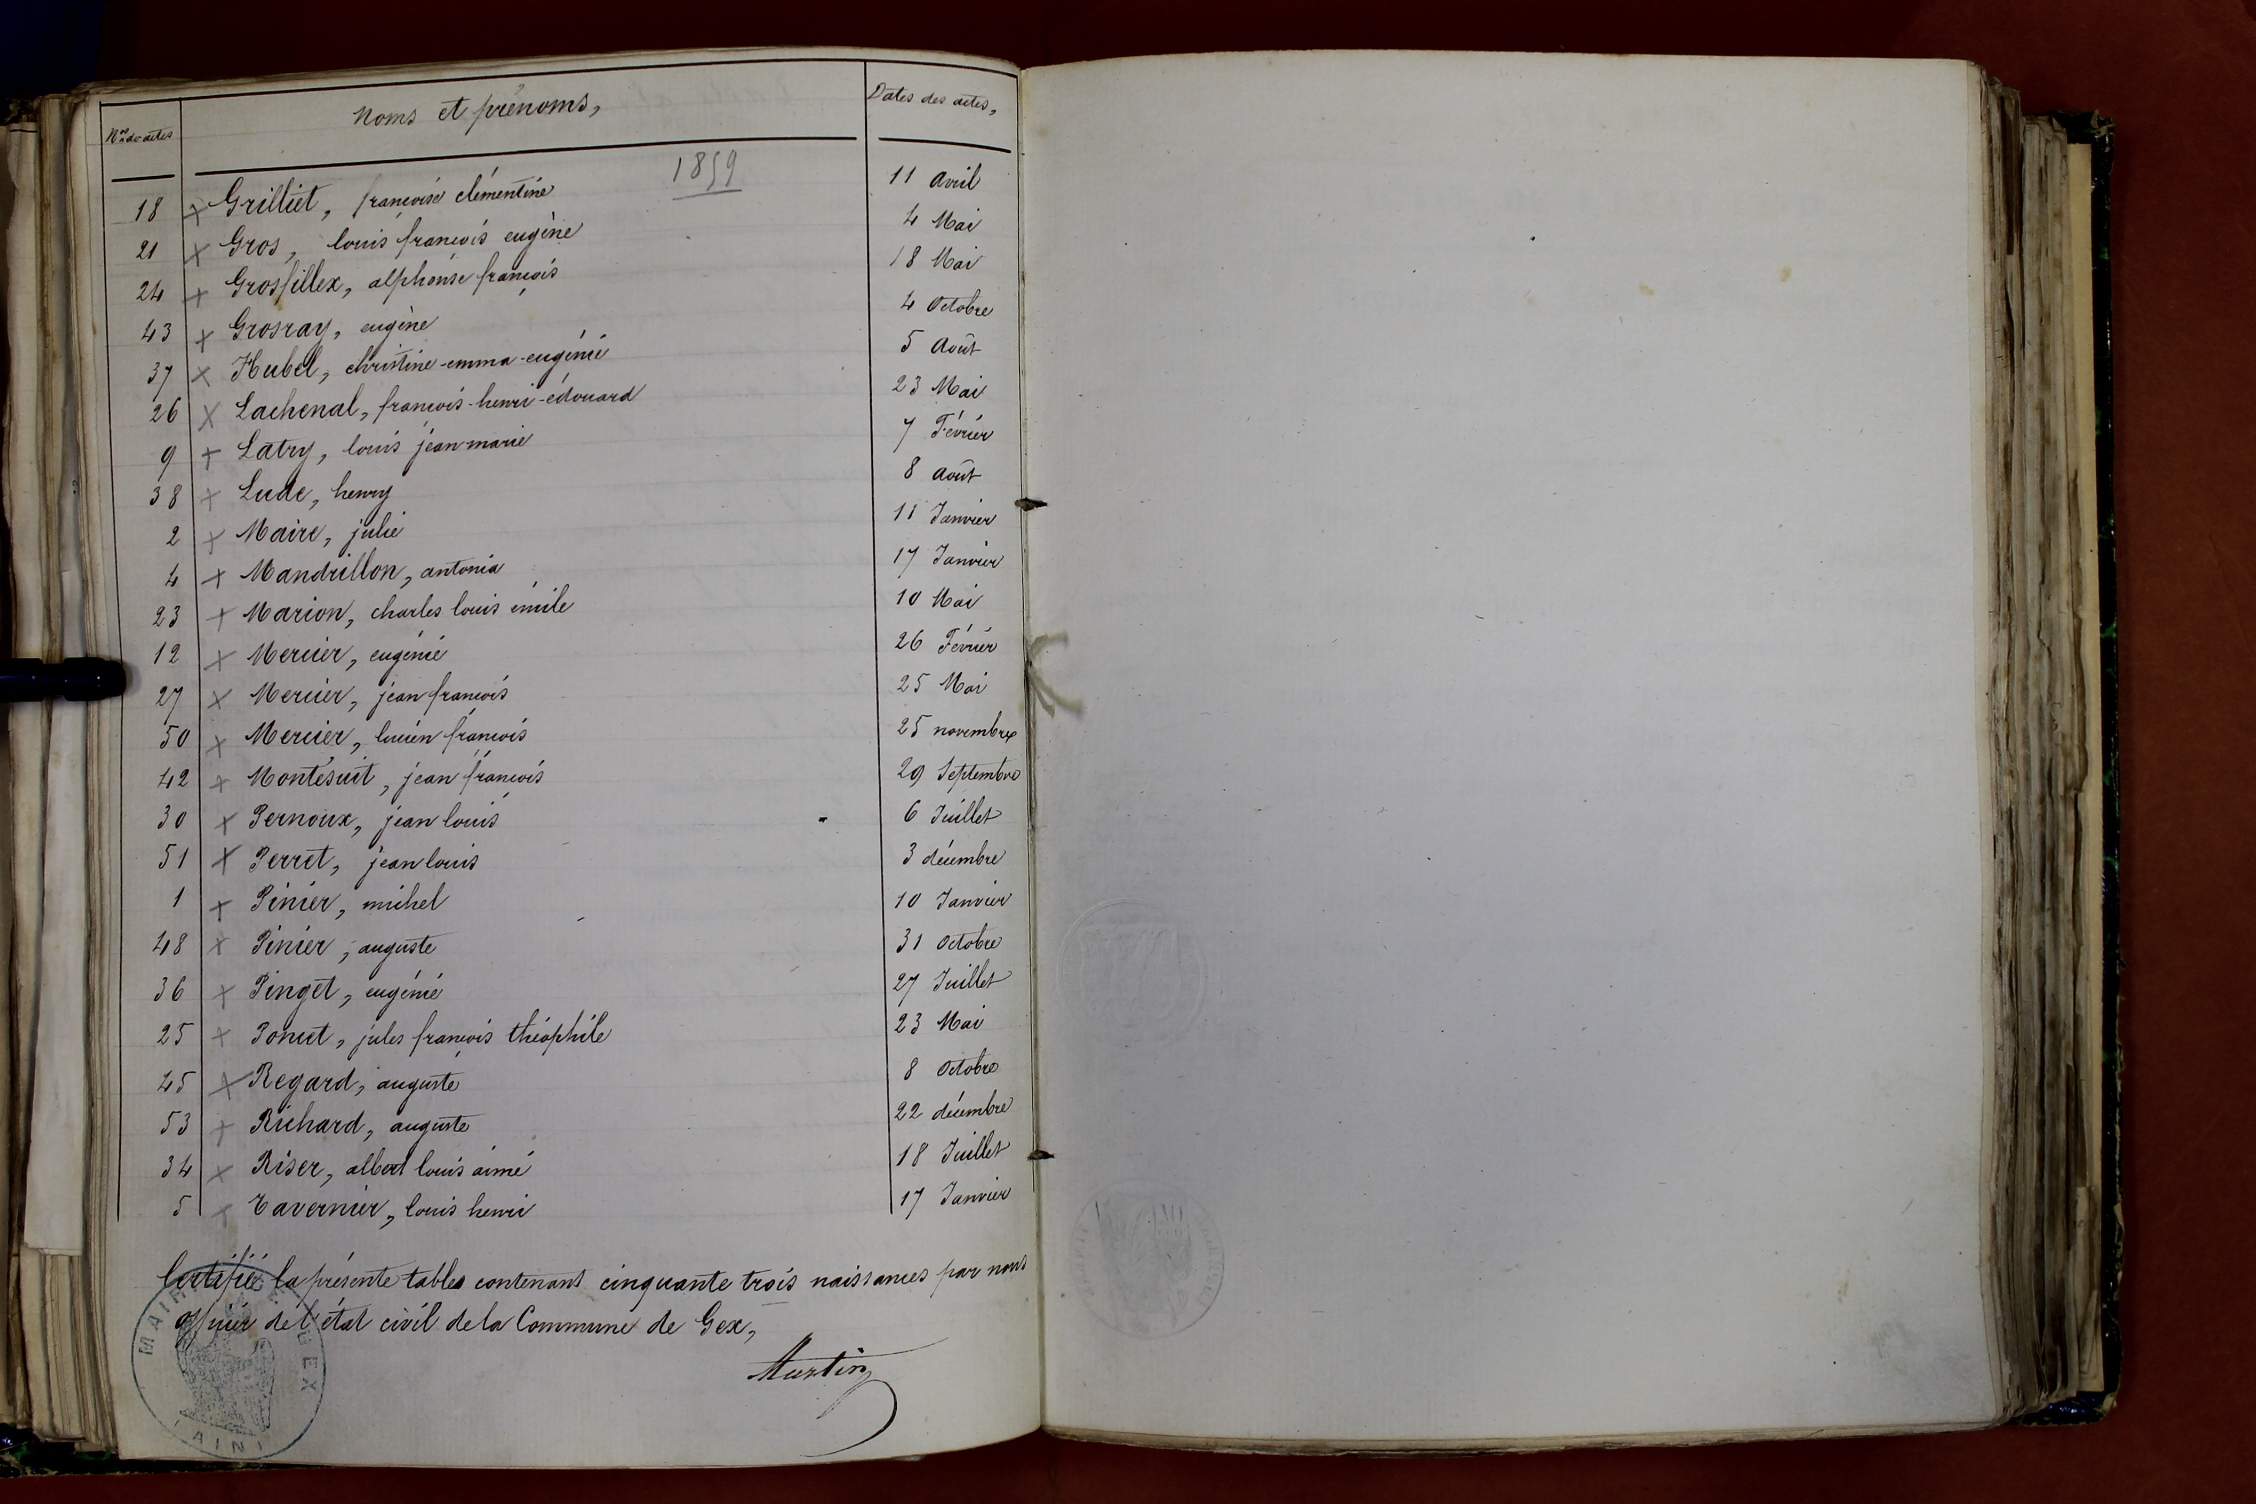 Nos des actes Noms et prénoms, Dates des actes,
1859
18 × Grilliet, françoise clémentine 11 avril
21 × Gros, louis françois eugène 4 Mai
24 × Grosfillex, alphonse françois 18 Mai
43 × Grosray, eugène 4 Octobre
37 × Hubel, christine-emma-eugénie 5 Août
26 × Lachenal, françois-henri-édouard 23 Mai
9 × Latry, louis jean marie 7 Février
38 × Lude, henry 8 août
2 × Maire, julie 11 Janvier
4 × Mandrillon, antonia 17 Janvier
23 × Marion, charles louis émile 10 Mai
12 × Mercier, eugénie 26 Février
27 × Mercier, jean françois 25 Mai
50 × Mercier, lucien françois 25 novembre
42 × Montésuit, jean françois 29 Septembre
30 × Pernoux, jean louis 6 Juillet
51 × Perret, jean louis 3 décembre
1 × Pinier, michel 10 Janvier
48 × Pinier, auguste 31 octobre
36 × Pinget, eugénie 27 Juillet
25 × Poncet, jules françois théophile 23 Mai
45 × Regard, auguste 8 octobre
53 × Richard, auguste 22 décembre
34 × Riser, albert louis aimé 18 Juillet
5 × Tavernier, louis henri 17 Janvier
Certifié la présente table contenant cinquante trois naissances par nous
officier de l'état civil de la Commune de Gex,
Martin
MAIRIE DE GEX
(AIN)